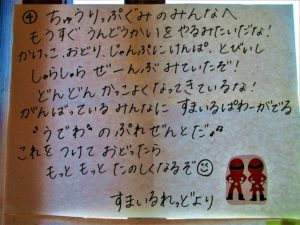 ④ ちゅうりっぷぐみのみんなへ
もうすぐ うんどうかい をやるみたいだな!
かけっこ、おどり、じゃんぷにけんぱ、とびいし
しゅらしゅら ぜーんぶ みていたぞ!
どんどん かっこよくなってきているな!
がんばっている みんなに すまいるぱわーがでる
"うでわ" の ぷれぜんとだ♪
これを つけて おどったら
もっと もっと たのしくなるぞ
すまいるれっどより